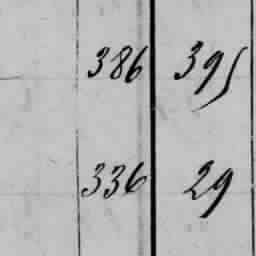 386 395
336 29